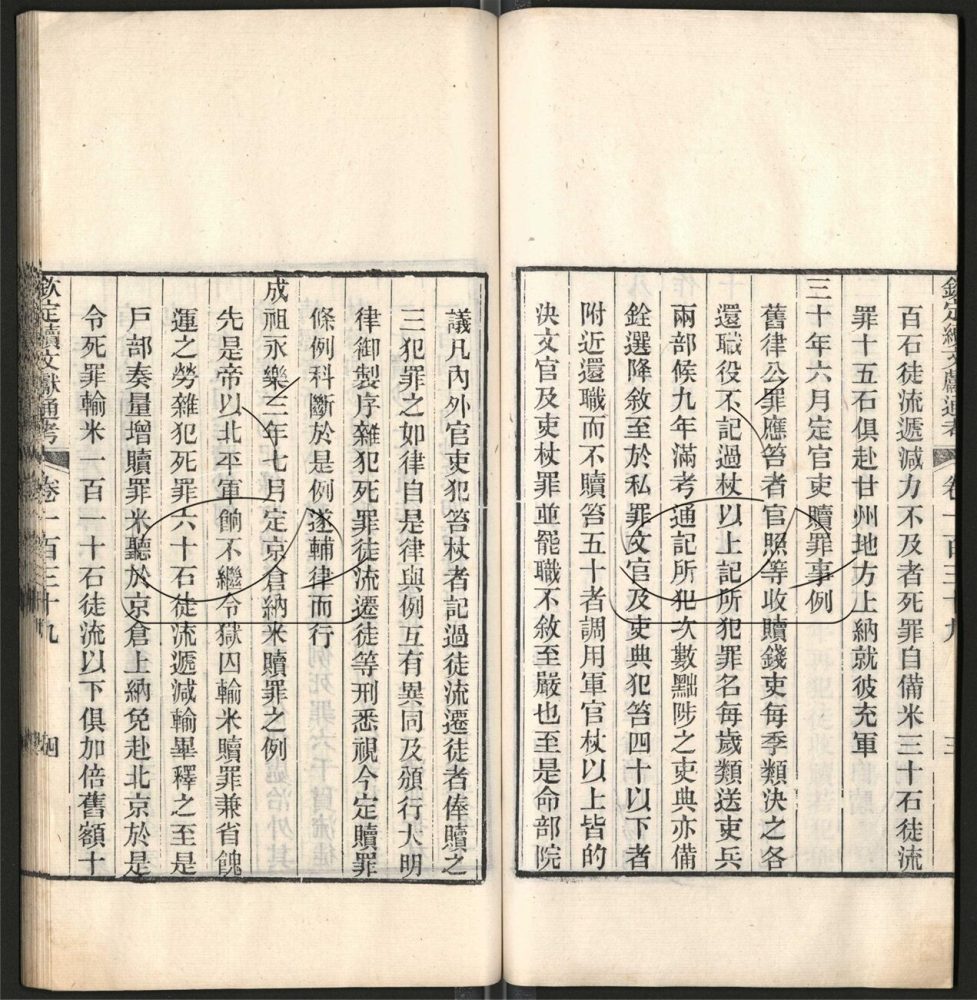 欽定續文獻通考 卷一百三十九 三
百石徒流遞減力不及者死罪自備米三十石徒流
罪十五石俱赴甘州地方上納就彼充軍
三十年六月定官吏贖罪事例
舊律公罪應笞者官照等收贖錢吏每季類決之各
還職役不記過杖以上記所犯罪名每歲類送吏兵
兩部候九年滿考通記所犯次數黜陟之吏典亦備
銓選降敘至於私罪文官及吏典犯笞四十以下者
附近還職而不贖笞五十者調用軍官杖以上皆的
決文官及吏杖罪並罷職不敘至嚴也至是命部院
議凡內外官吏犯笞杖者記過徒流遷徒者俸贖之
三犯罪之如律自是律與例互有異同及頒行大明
律御製序雜犯死罪徒流遷徒等刑悉視今定贖罪
條例科斷於是例遂輔律而行
成祖永樂三年七月定京倉納米贖罪之例
先是帝以北平軍餉不繼令獄囚輸米贖罪兼省餽
運之勞雜犯死罪六十石徒流遞減輸畢釋之至是
戶部奏量增贖罪米聽於京倉上納免赴北京於是
令死罪輸米一百一十石徒流以下俱加倍舊額十
欽定續文獻通考 卷一百三十九 四